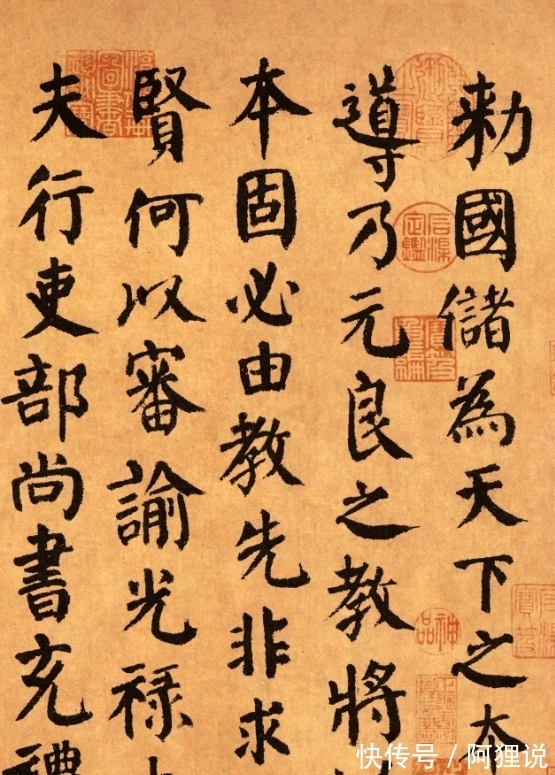 勑國儲為天下之夲
導乃元良之教將
本固必由教先非求
賢何以審諭光祿
夫行吏部尚書充禮
神品
快传号 / 阿狸说